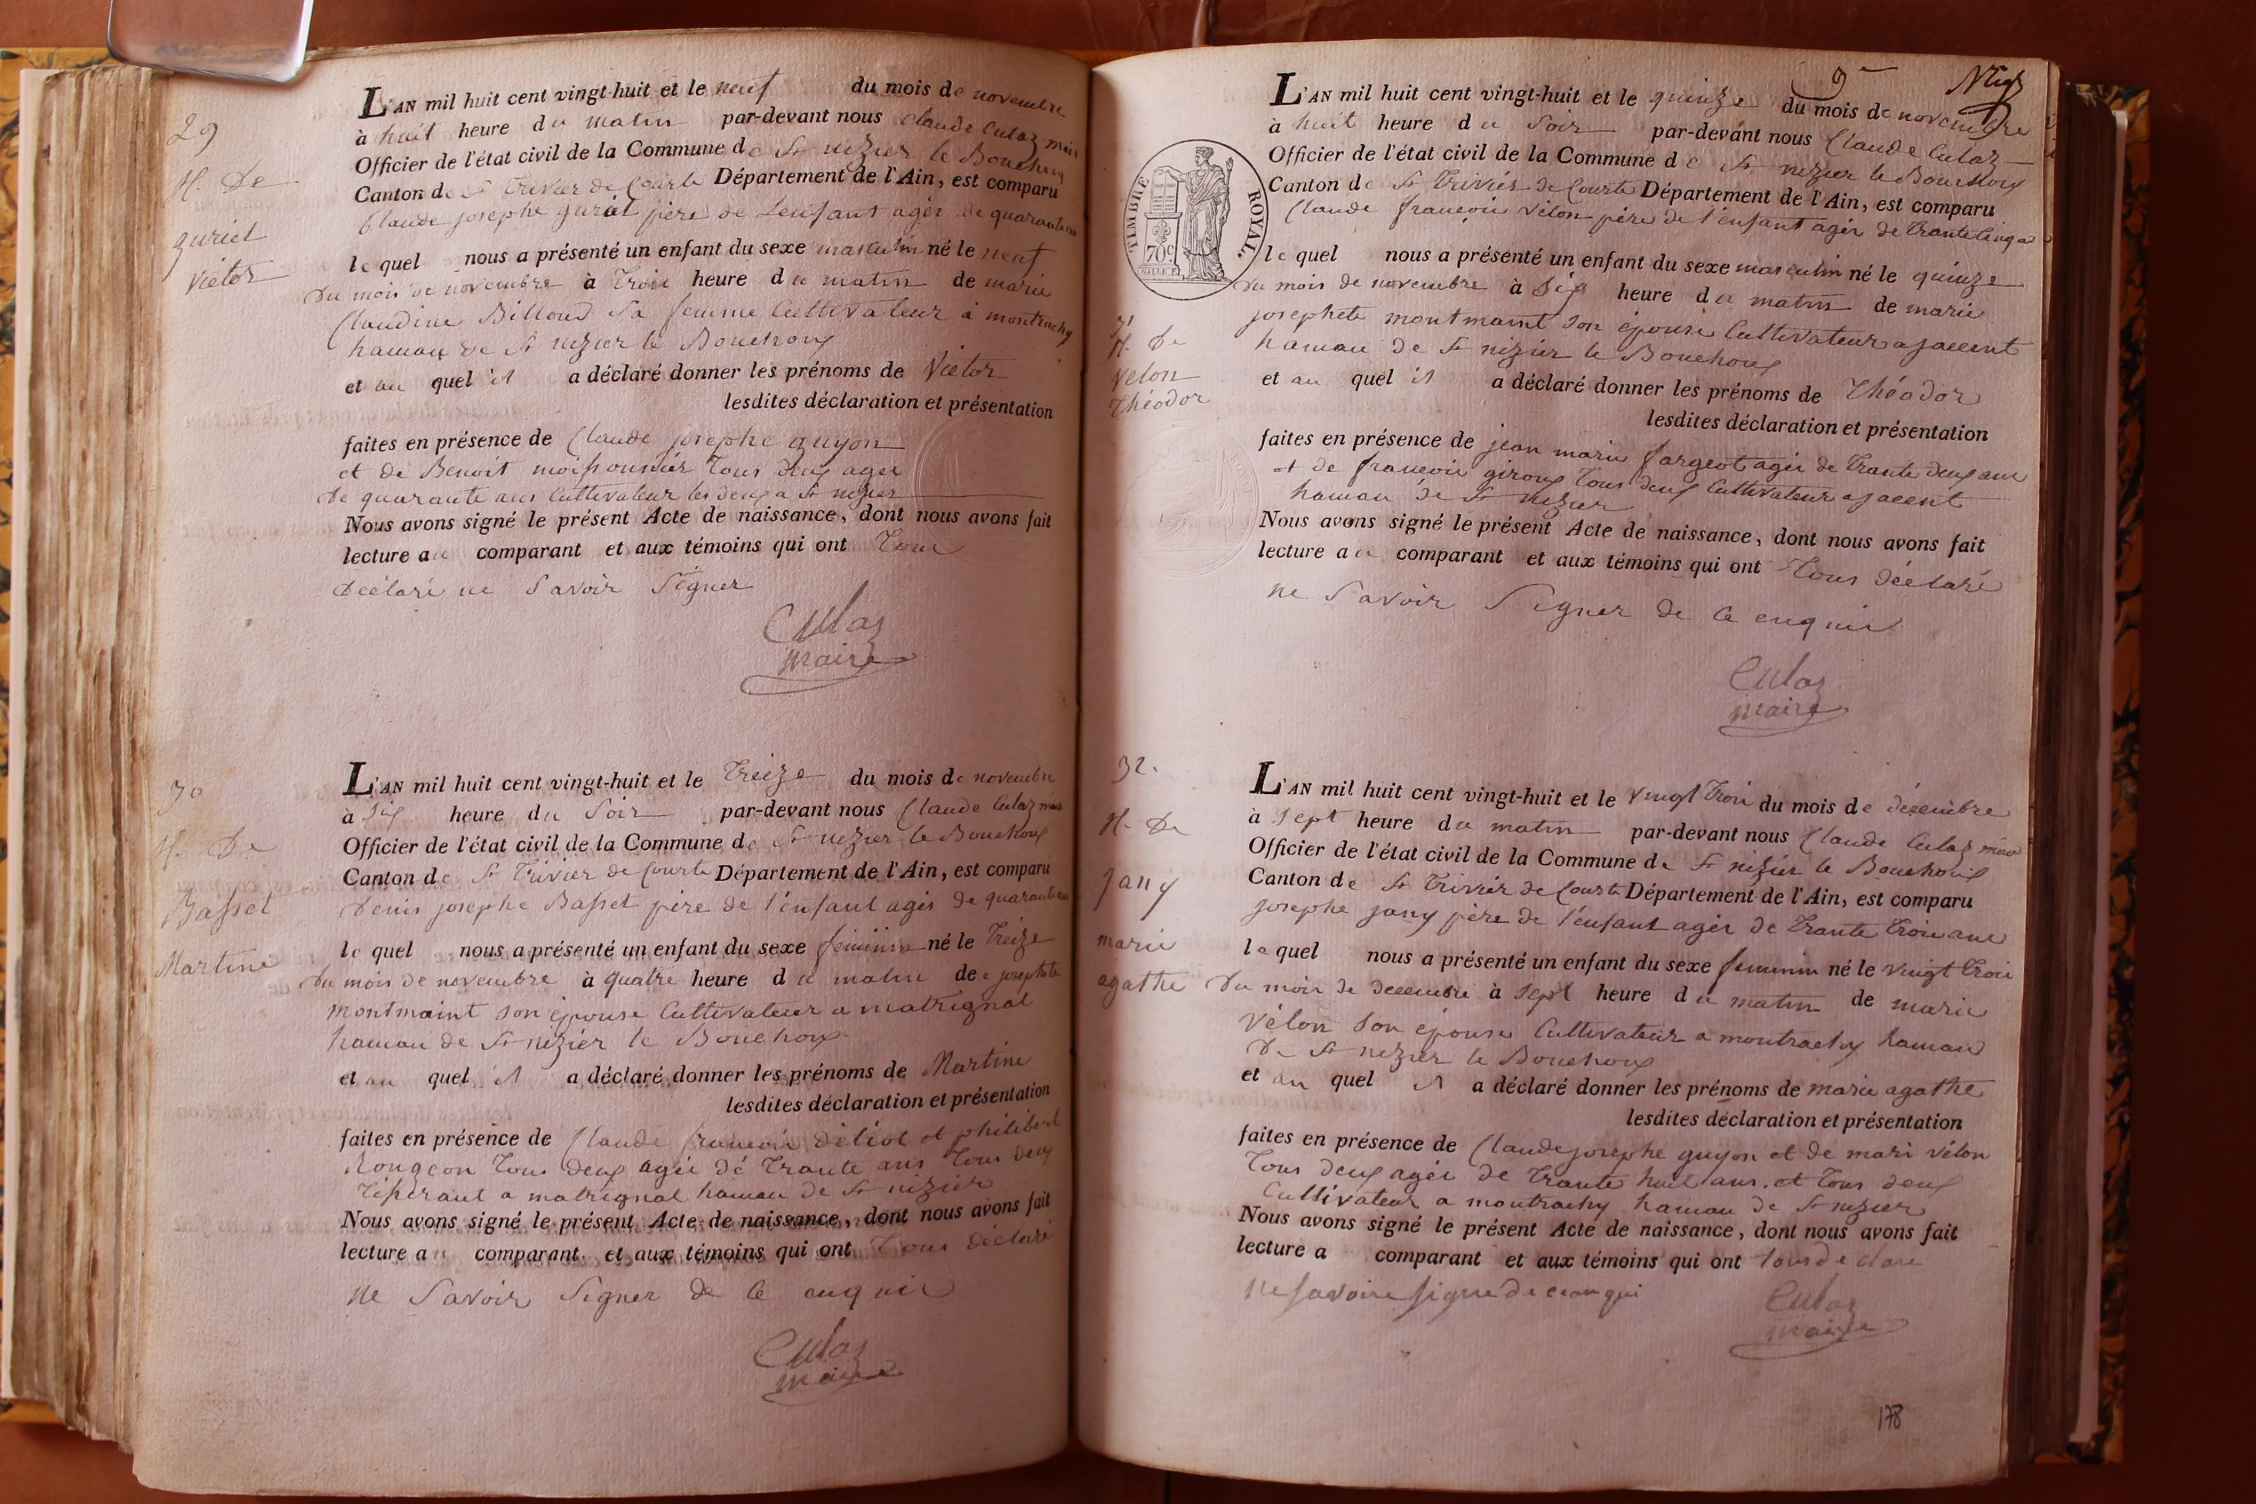 29
N. De
guriet
Victor
L'AN mil huit cent vingt-huit et le neuf du mois de novembre
à huit heure du matin par-devant nous Claude Culaz maire
Officier de l'état civil de la Commune de St nizier le Bouchoux
Canton de St Trivier de Courte Département de l'Ain, est comparu
Claude josephe guriet père de Lenfant agér de quarante
le quel nous a présenté un enfant du sexe masculin né le neuf
du mois de novembre à Troie heure du matin de marie
Claudine Billoud Sa femme Cultivateur a montrachy
hamau de St nizier le Bouchoux
et au quel il a déclaré donner les prénoms de Victor
lesdites déclaration et présentation
faites en présence de Claude josephe guyon
et de Benoit moissonnier Tous deux agér
de quarante ans Cultivateur les deux a St nizier
Nous avons signé le présent Acte de naissance, dont nous avons fait
lecture au comparant et aux témoins qui ont Tous
Déclaré ne Savoir Signer
Culaz
maire
30
N. De
Basset
Martine
L'AN mil huit cent vingt-huit et le Treize du mois de novembre
à six heure du Soir par-devant nous Claude Culaz maire
Officier de l'état civil de la Commune de St nizier le Bouchoux
Canton de St Trivier de Courte Département de l'Ain, est comparu
Denis josephe Basset père de l'énfant agér de quarante
le quel nous a présenté un enfant du sexe féminin né le Treize
du mois de novembre à quatre heure du matin de josephete
montmaint son épouse Cultivateur a matrignat
hamau de St nizier le Bouchoux
et au quel il a déclaré donner les prénoms de Martine
lesdites déclaration et présentation
faites en présence de Claude francoie et philibert
Rongeon Tous deux agér de Trante ans Tous deux
a matrignat hamau de St nizier
Nous avons signé le présent Acte de naissance, dont nous avons fait
lecture au comparant et aux témoins qui ont Tous déclaré
ne Savoir Signer de ce enquir
Culaz
maire
9
TIMBRE ROYAL
70c
31
N. De
Velon
Théodor
L'AN mil huit cent vingt-huit et le quinze du mois de novembre
à huit heure du Soir par-devant nous Claude Culaz
Officier de l'état civil de la Commune de St nizier le Bouchoux
Canton de St Trivier de Courte Département de l'Ain, est comparu
Claude francoie Vélon père de l'énfant agér de Trante
le quel nous a présenté un enfant du sexe masculin né le quinze
du mois de novembre à Six heure du matin de marie
josephete montmaint son épouse Cultivateur a jacent
hamau de St nizier le Bouchoux
et au quel il a déclaré donner les prénoms de Théodor
lesdites déclaration et présentation
faites en présence de jean marie fargeot agér de Trante deux ans
et de francoie giroux Tous deux Cultivateur a jacent
hamau de St nizier
Nous avons signé le présent Acte de naissance, dont nous avons fait
lecture au comparant et aux témoins qui ont Tous déclaré
ne Savoir Signer de ce enquir
Culaz
maire
32.
N. De
jany
marie
agathe
L'AN mil huit cent vingt-huit et le vingt Troie du mois de décembre
à sept heure du matin par-devant nous Claude Culaz maire
Officier de l'état civil de la Commune de St nizier le Bouchoux
Canton de St Trivier de Courte Département de l'Ain, est comparu
josephe jany père de l'énfant agér de Trante Troie ans
le quel nous a présenté un enfant du sexe féminin né le vingt Troie
du mois de decembre à sept heure du matin de marie
vélon son épouse Cultivateur a montrachy hamau
de St nizier le Bouchoux
et au quel il a déclaré donner les prénoms de marie agathe
lesdites déclaration et présentation
faites en présence de Claude josephe guyon et de mari vélon
Tous deux agér de Trante huit ans et Tous deux
Cultivateur a montrachy hamau de St nizier
Nous avons signé le présent Acte de naissance, dont nous avons fait
lecture a comparant et aux témoins qui ont tous de clare
ne savoire signe de ce an qui
Culaz
maire
178